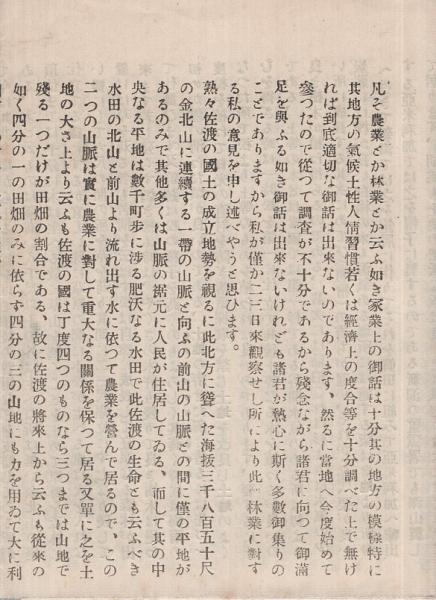 凡そ農業とか林業とか云ふ如き家業上の御話は十分其の地方の模樣特に
其地方の氣候土性人情習慣若くは經濟上の度合等を十分調べた上で無け
れば到底適切な御話は出來ないのであります、然るに當地へ今度始めて
參つたので從つて調査が不十分であるから殘念ながら諸君に向つて御滿
足を與ふる如き御話は出來ないけれども諸君が熱心に斯く多數御集りの
ことでありますから私が僅か二三日來觀察せし所により此林業に對す
る私の意見を申し述べやうと思ひます。
熟々佐渡の國土の成立地勢を視るに此北方に聳へた海拔三千八百五十尺
の金北山に連續する一帶の山脈と向ふの前山の山脈との間に僅の平地が
あるのみで其他多くは山脈の裾元に人民が住居してゐる、而して其の中
央なる平地は數千町步に涉る肥沃なる水田で此佐渡の生命とも云ふべき
水田の北山と前山より流れ出す水に依つて農業を營んで居るので、この
二つの山脈は實に農業に對して重大なる關係を保つて居る又單に之を土
地の大さ上より云ふも佐渡の國は丁度四つのものなら三つまでは山地で
殘る一つだけが田畑の割合である、故に佐渡の將來上から云ふも從來の
如く四分の一の田畑のみに依らす四分の三の山地にも力を用ゐて大に利